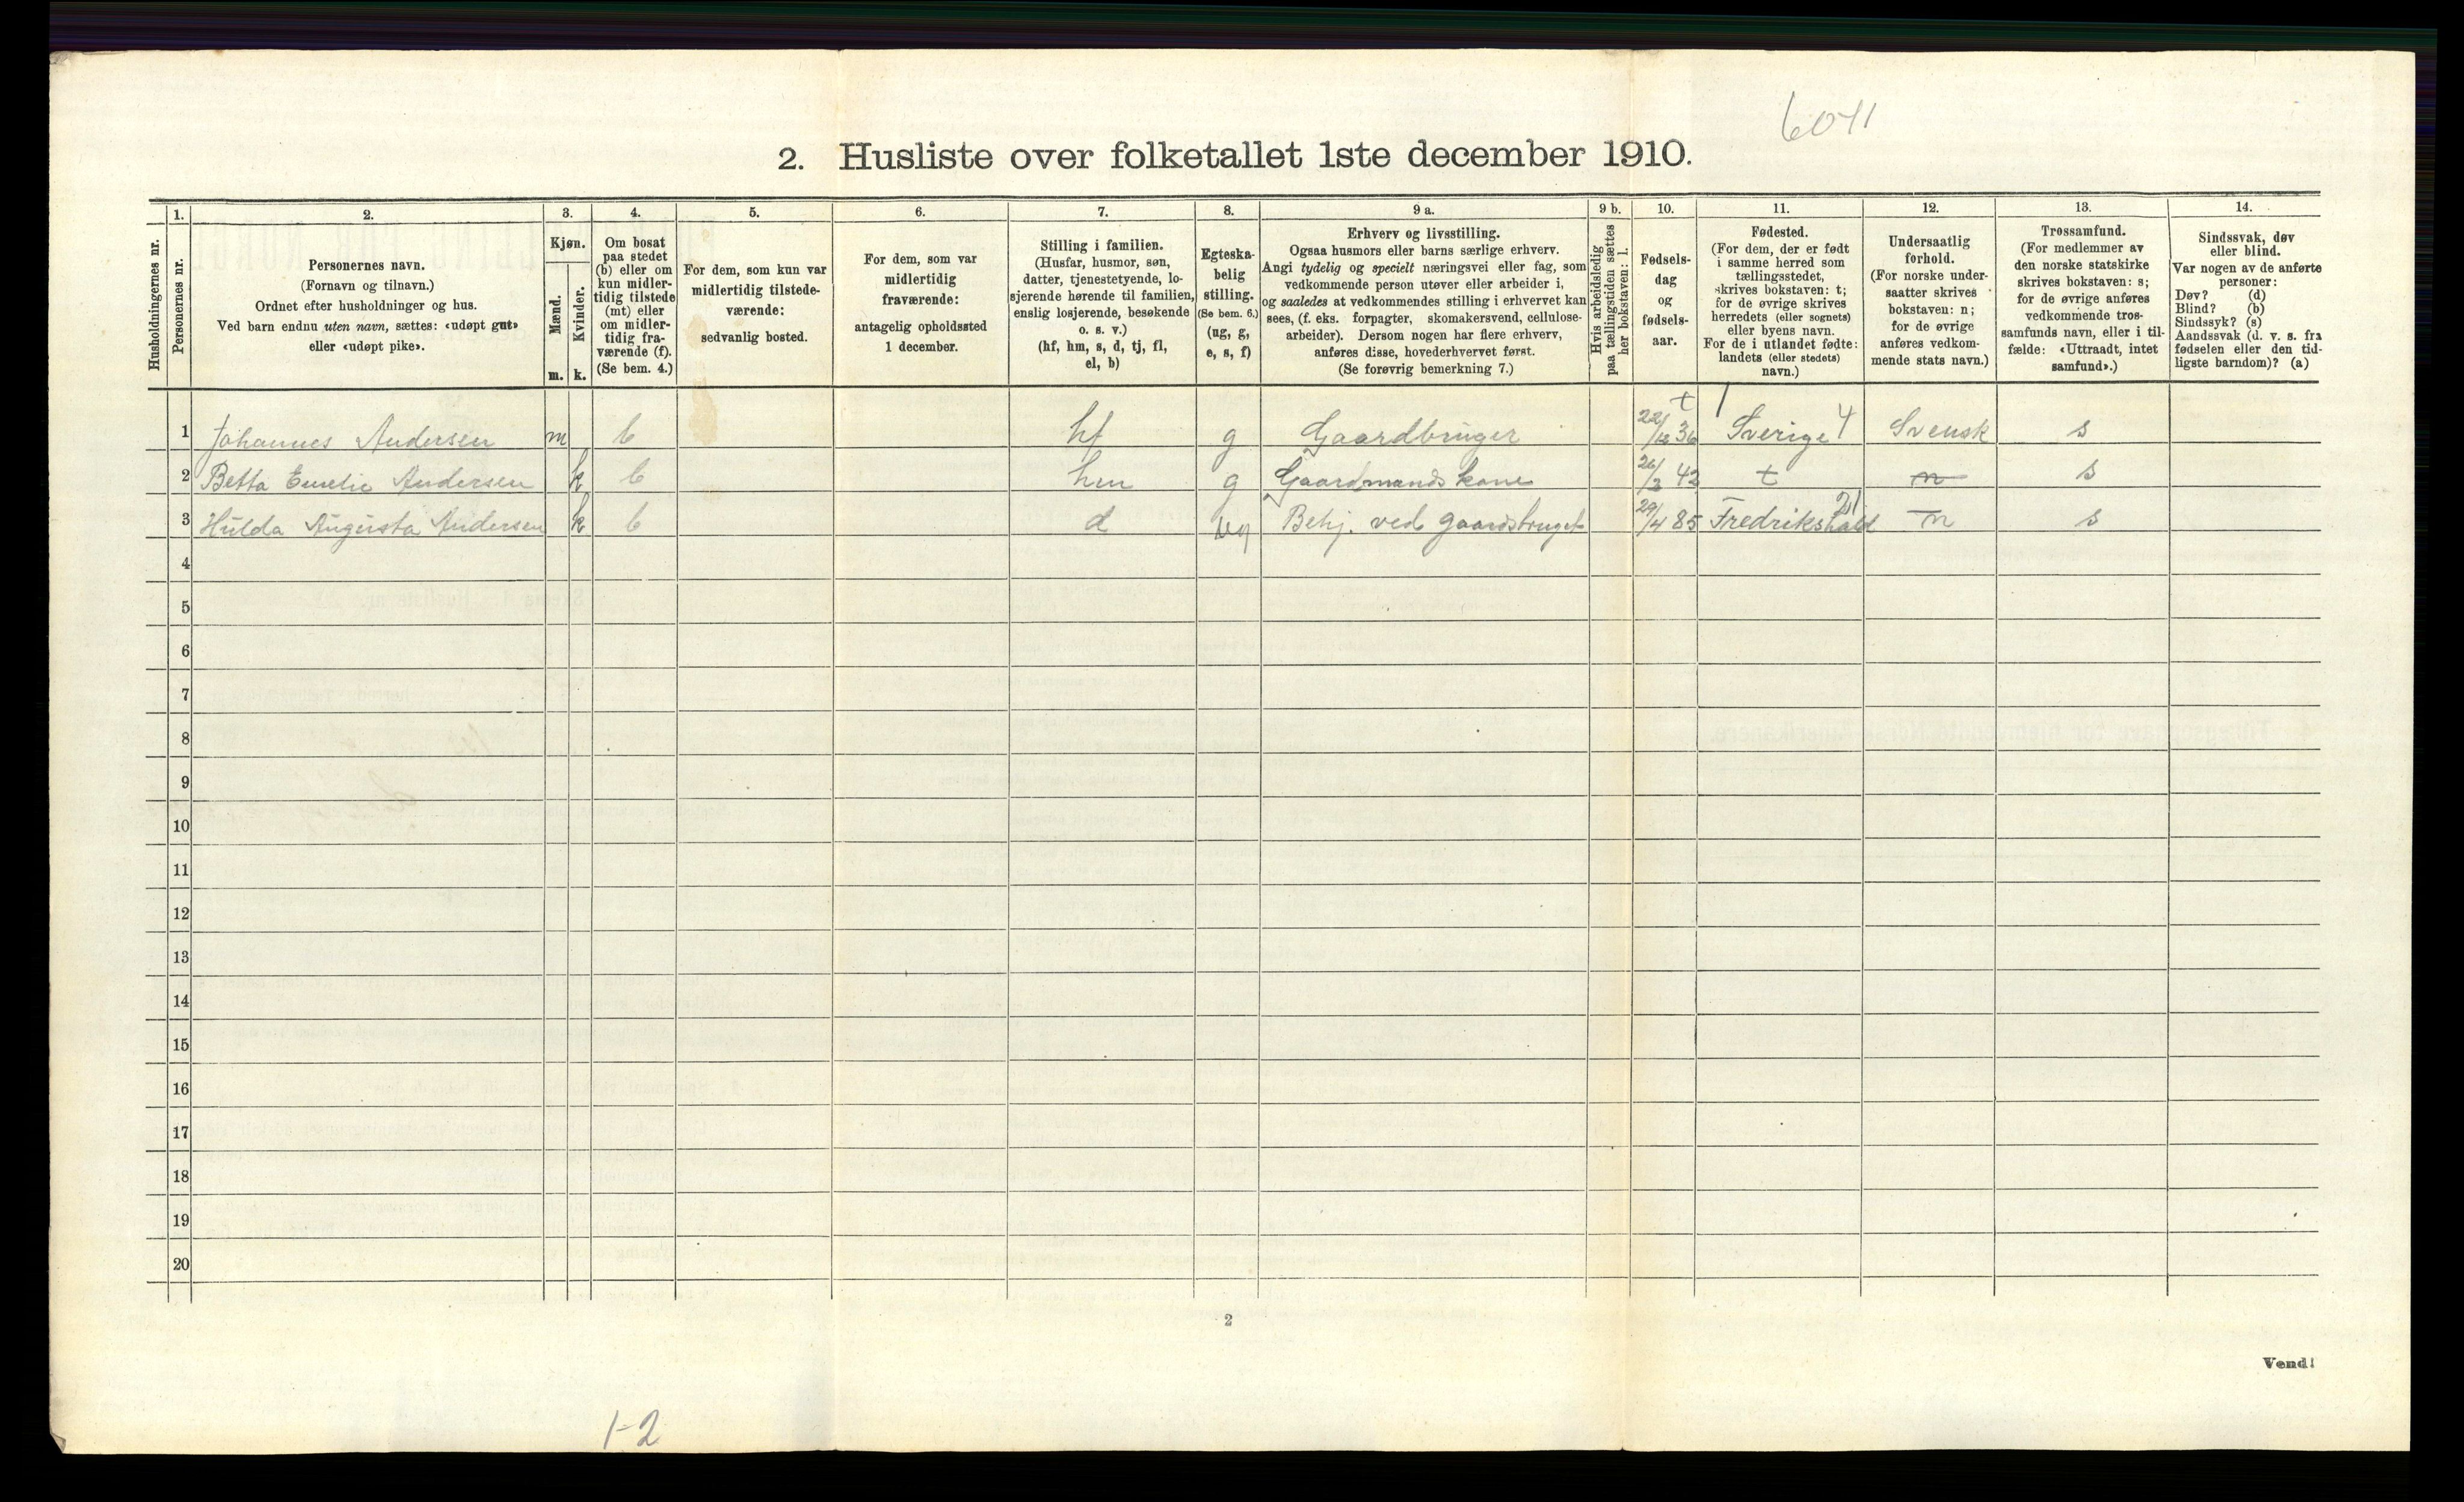 6041
2. Husliste over folketallet 1ste december 1910.
Husholdningernes nr.
1.
Personernes nr.
2.
Personernes navn.
(Fornavn og tilnavn.)
Ordnet efter husholdninger og hus.
Ved barn endnu uten navn, sættes: «udøpt gut»
eller «udøpt pike».
3.
Kjøn.
Mænd.
m.
Kvinder.
k.
4.
Om bosat
paa stedet
(b) eller om
kun midler-
tidig tilstede
(mt) eller
om midler-
tidig fra-
værende (f).
(Se bem. 4.)
5.
For dem, som kun var
midlertidig tilstede-
værende:
sedvanlig bosted.
6.
For dem, som var
midlertidig
fraværende:
antagelig opholdssted
1 december.
7.
Stilling i familien.
(Husfar, husmor, søn,
datter, tjenestetyende, lo-
sjerende hørende til familien,
enslig losjerende, besøkende
o. s. v.)
(hf, hm, s, d, tj, fl,
el, b)
8.
Egteska-
belig
stilling.
(Se bem. 6.)
(ug, g,
e, s, f)
9 a.
Erhverv og livsstilling.
Ogsaa husmors eller barns særlige erhverv.
Angi tydelig og specielt næringsvei eller fag, som
vedkommende person utøver eller arbeider i,
og saaledes at vedkommendes stilling i erhvervet kan
sees, (f. eks. forpagter, skomakersvend, cellulose-
arbeider). Dersom nogen har flere erhverv,
anføres disse, hovederhvervet først.
(Se forøvrig bemerkning 7.)
9 b.
Hvis arbeidsledig
paa tællingstiden sættes
her bokstaven: l.
10.
Fødsels-
dag
og
fødsels-
aar.
11.
Fødested.
(For dem, der er født
i samme herred som
tællingsstedet,
skrives bokstaven: t;
for de øvrige skrives
herredets (eller sognets)
eller byens navn.
For de i utlandet fødte:
landets (eller stedets)
navn.)
12.
Undersaatlig
forhold.
(For norske under-
saatter skrives
bokstaven: n;
for de øvrige
anføres vedkom-
mende stats navn.)
13.
Trossamfund.
(For medlemmer av
den norske statskirke
skrives bokstaven: s;
for de øvrige anføres
vedkommende tros-
samfunds navn, eller i til-
fælde: «Uttraadt, intet
samfund».)
14.
Sindssvak, døv
eller blind.
Var nogen av de anførte
personer:
Døv? (d)
Blind? (b)
Sindssyk? (s)
Aandssvak (d. v. s. fra
fødselen eller den tid-
ligste barndom)? (a)
1 Johannes Andersen m b hf g Gaardbruger 22/12 36 t Sverige 4 Svensk s
2 Betta Emelie Andersen k b hm g Gaardmandskone 26/3 42 t n s
3 Hulda Augusta Andersen k b d ug Behj. ved gaardsbruget 29/4 85 Fredrikshald 21 n s
4
5
6
7
8
9
10
11
12
13
14
15
16
17
18
19
20
2
Vend!
1-2